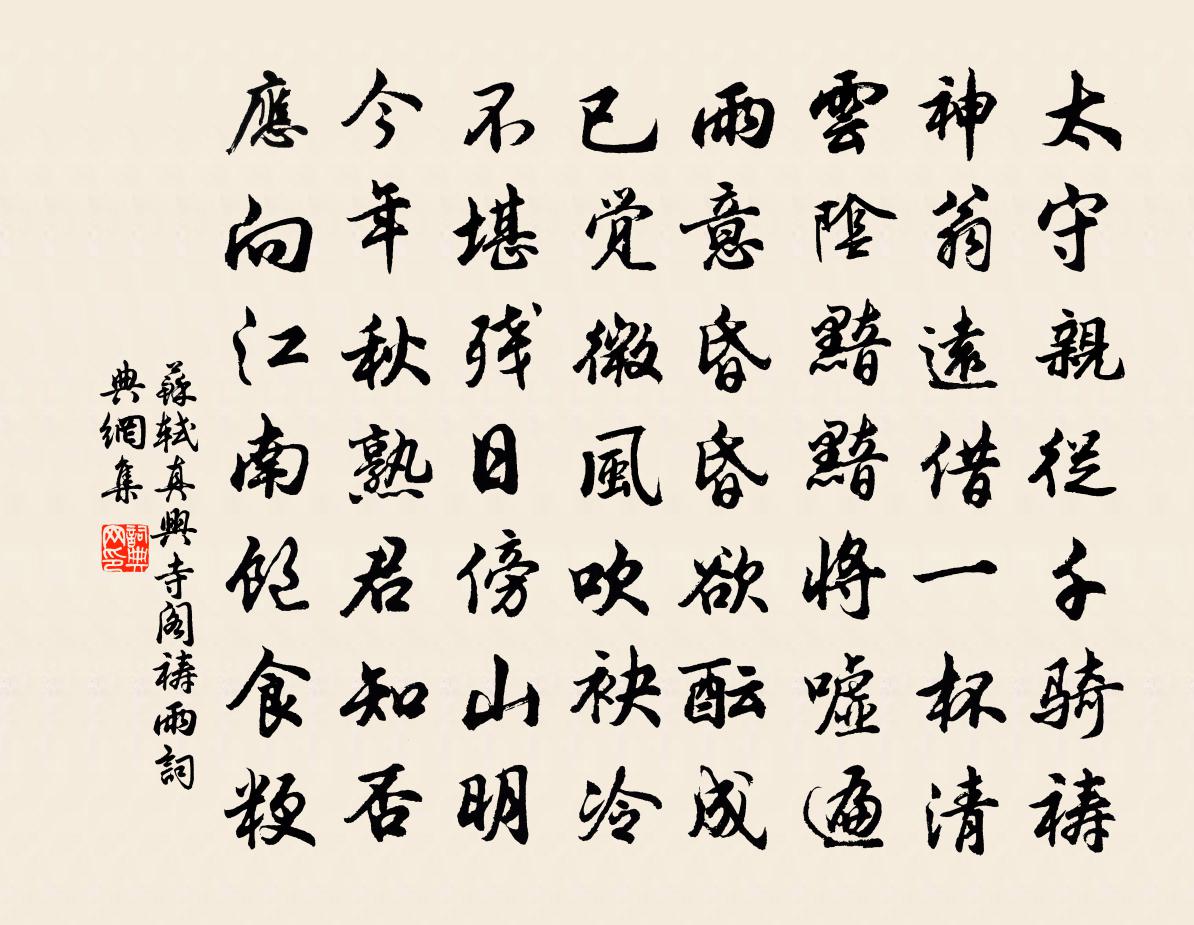 太守親従千騎祷
神翁遠借一杯清
雲陰黯黯將噓遍
雨意昏昏欲酝成
已觉微風吹袂冷
不堪残日傍山明
今年秋熟君知否
應向江南飽食粳
蘇轼真興寺阁祷雨詞
典網集
詞典网印